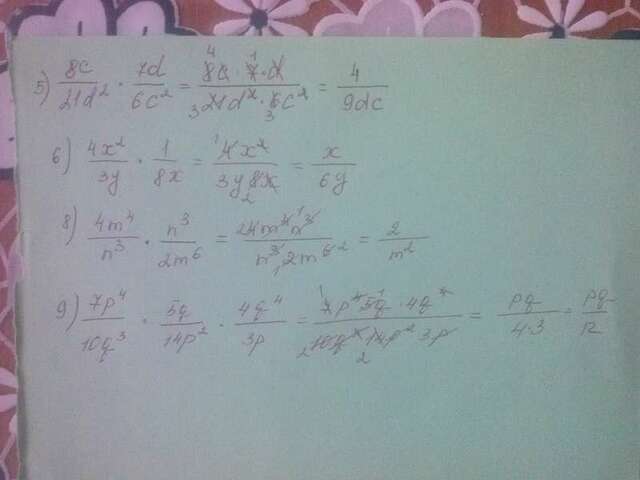 5) 8c/21d² · 7d/6c² = 8c · 7 · d/21d² · 6c² = 4/9dc
6) 4x²/3y · 1/8x = 4x²/3y8x = x/6y
8) 4m⁴/n³ · n³/2m⁶ = 4m⁴n³/n³2m⁶ = 2/m²
9) 7p⁴/10q³ · 5q/14p² · 4q⁴/3p = 7p⁴5q · 4q⁴/10q³14p²3p = pq/4·3 = pq/12